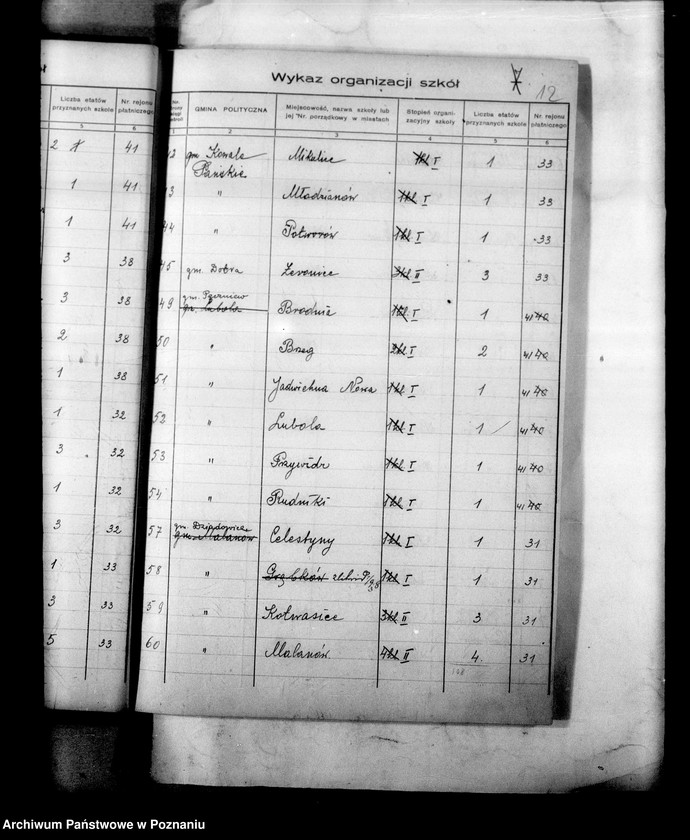 Wykaz organizacji szkół
12
Liczba etatów przyznanych szkole
Nr. rejonu płatniczego
GMINA POLITYCZNA
Miejscowość, nazwa szkoły lub jej Nr. porządkowy w miastach
Stopień organizacyjny szkoły
Liczba etatów przyznanych szkole
Nr. rejonu płatniczego
5 6
1 2 3 4 5 6
2 41
1 41
1 41
3 38
3 38
2 38
1 38
1 32
3 32
1 32
3 32
1 33
3 33
5 33
gm. Kowale Pańskie Mikulice I 1 33
" Młodzianów I 1 33
44 " Potworów I 1 33
45 gm. Dobra Żeronice II 3 33
49 gm. Pęczniew gm. Lubola Brodnia 1kl I 1 41 40
50 " Brzeg I 2 41 40
51 " Jadwichna Nowa 1kl I 1 41 40
52 " Lubola 1kl I 1 41 40
53 " Przywidz 1kl I 1 41 40
54 " Rudniki 1kl I 1 41 40
57 gm. Malanów Celestyny 1kl I 1 31
58 " Grąbków 1kl I 1 31
59 " Kotwasice 3kl II 3 31
60 " Malanów 4kl II 4 31
Archiwum Państwowe w Poznaniu